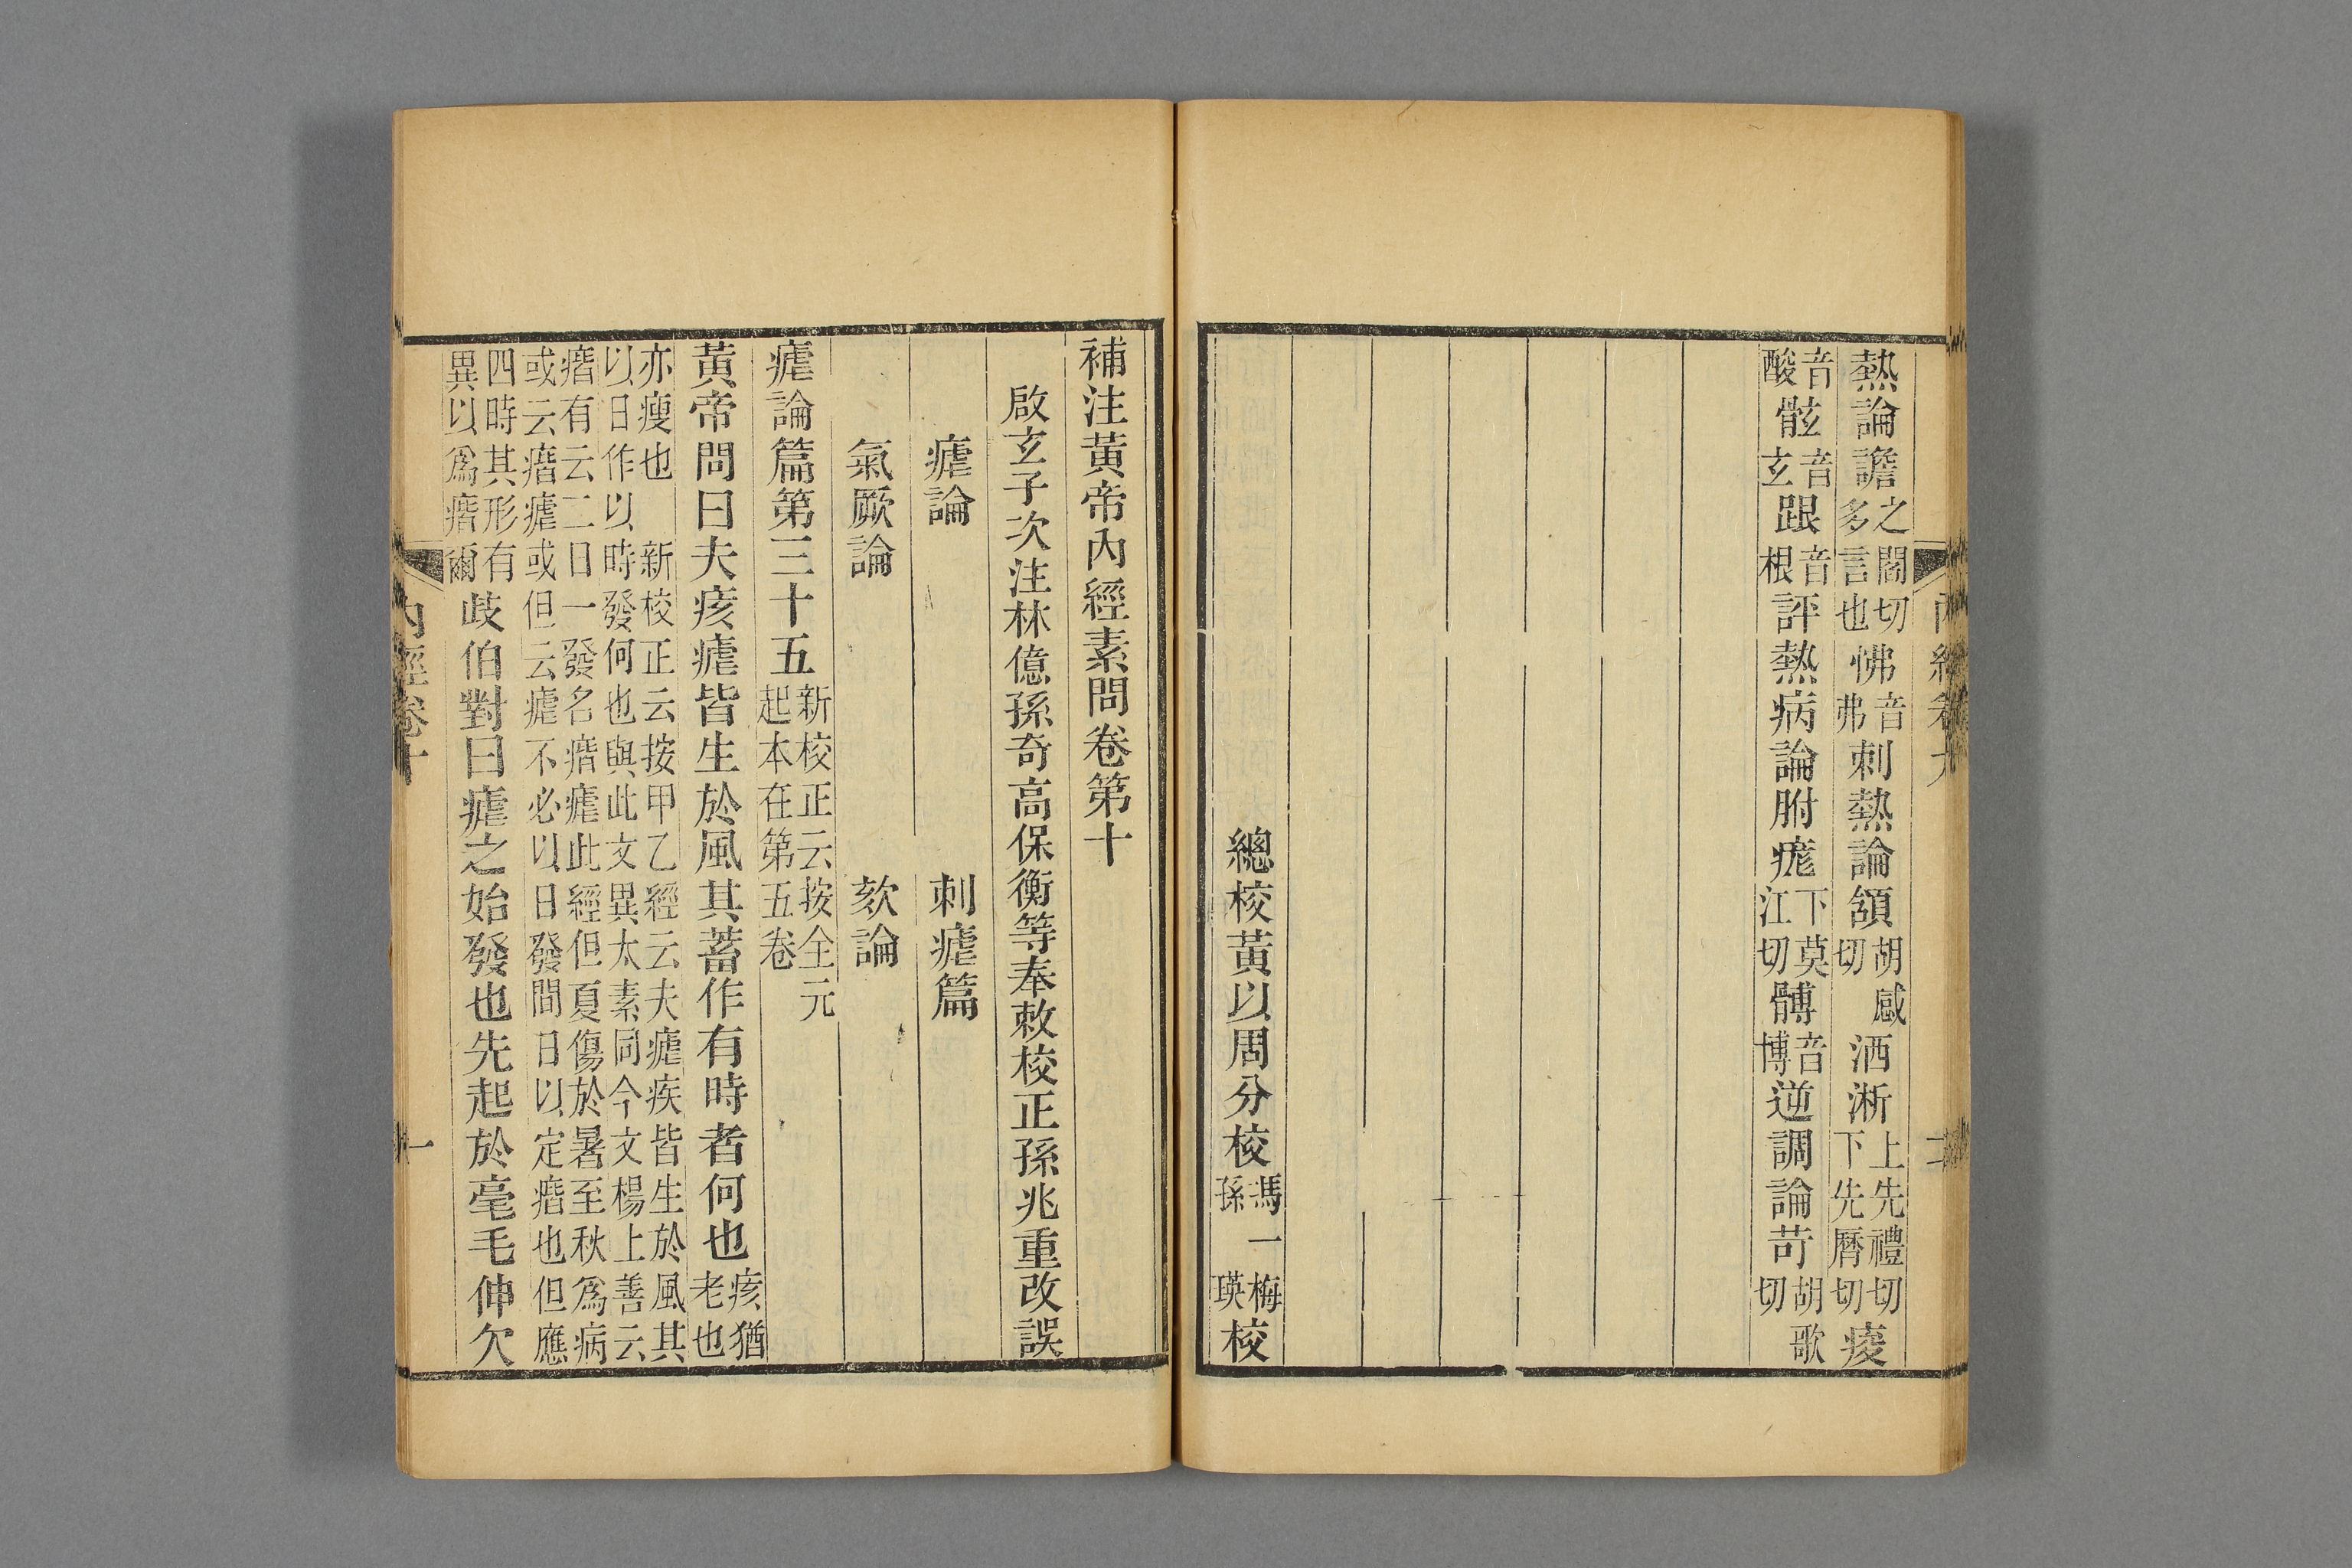 熱論譫之閻切多言也怫音弗刺熱論頷胡感切洒淅上先禮切下先曆切痠
音酸音玄跟音根評熱病論胕痝下莫江切髆音博逆調論苛胡歌切
總校黃以周分校馮一梅孫瑛校
補注黃帝內經素問卷第十
啟玄子次注林億孫奇高保衡等奉敕校正孫兆重改誤
瘧論 刺瘧篇
氣厥論 欬論
瘧論篇第三十五新校正云按全元起本在第五卷
黃帝問曰夫痎瘧皆生於風其蓄作有時者何也痎猶老也
亦瘦也 新校正云按甲乙經云夫瘧疾皆生於風其
以日作以時發何也與此文異太素同今文楊上善云
㾬有云二日一發名㾬瘧此經但夏傷於暑至秋爲病
或云㾬瘧或但云瘧不必以日發間日以定㾬也但應
四時其形有異以爲㾬爾歧伯對曰瘧之始發也先起於毫毛伸欠
內經卷十 一